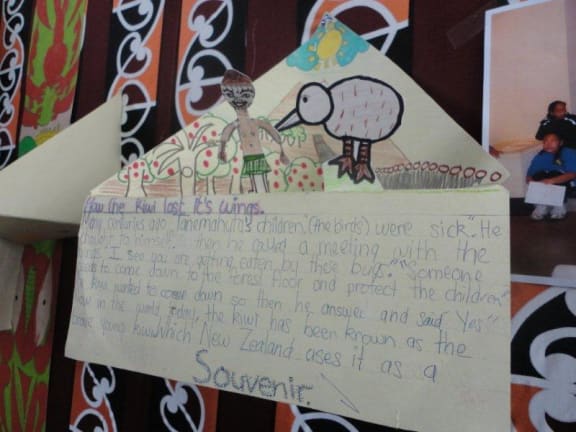 How the kiwi lost it's wings.
Many centuries ago Tanemahuta's children, (the birds) were sick". He
thought to himself. then he called a meeting with the
birds. I see you are getting eaten by these bugs." "Someone
needs to come down to the forest floor and protect the children"
kiwi wanted to come down so then he answer and said, "Yes"
now in the world today, the kiwi has been known as the
young kiwi which New Zealand uses it as a
Souvenir.